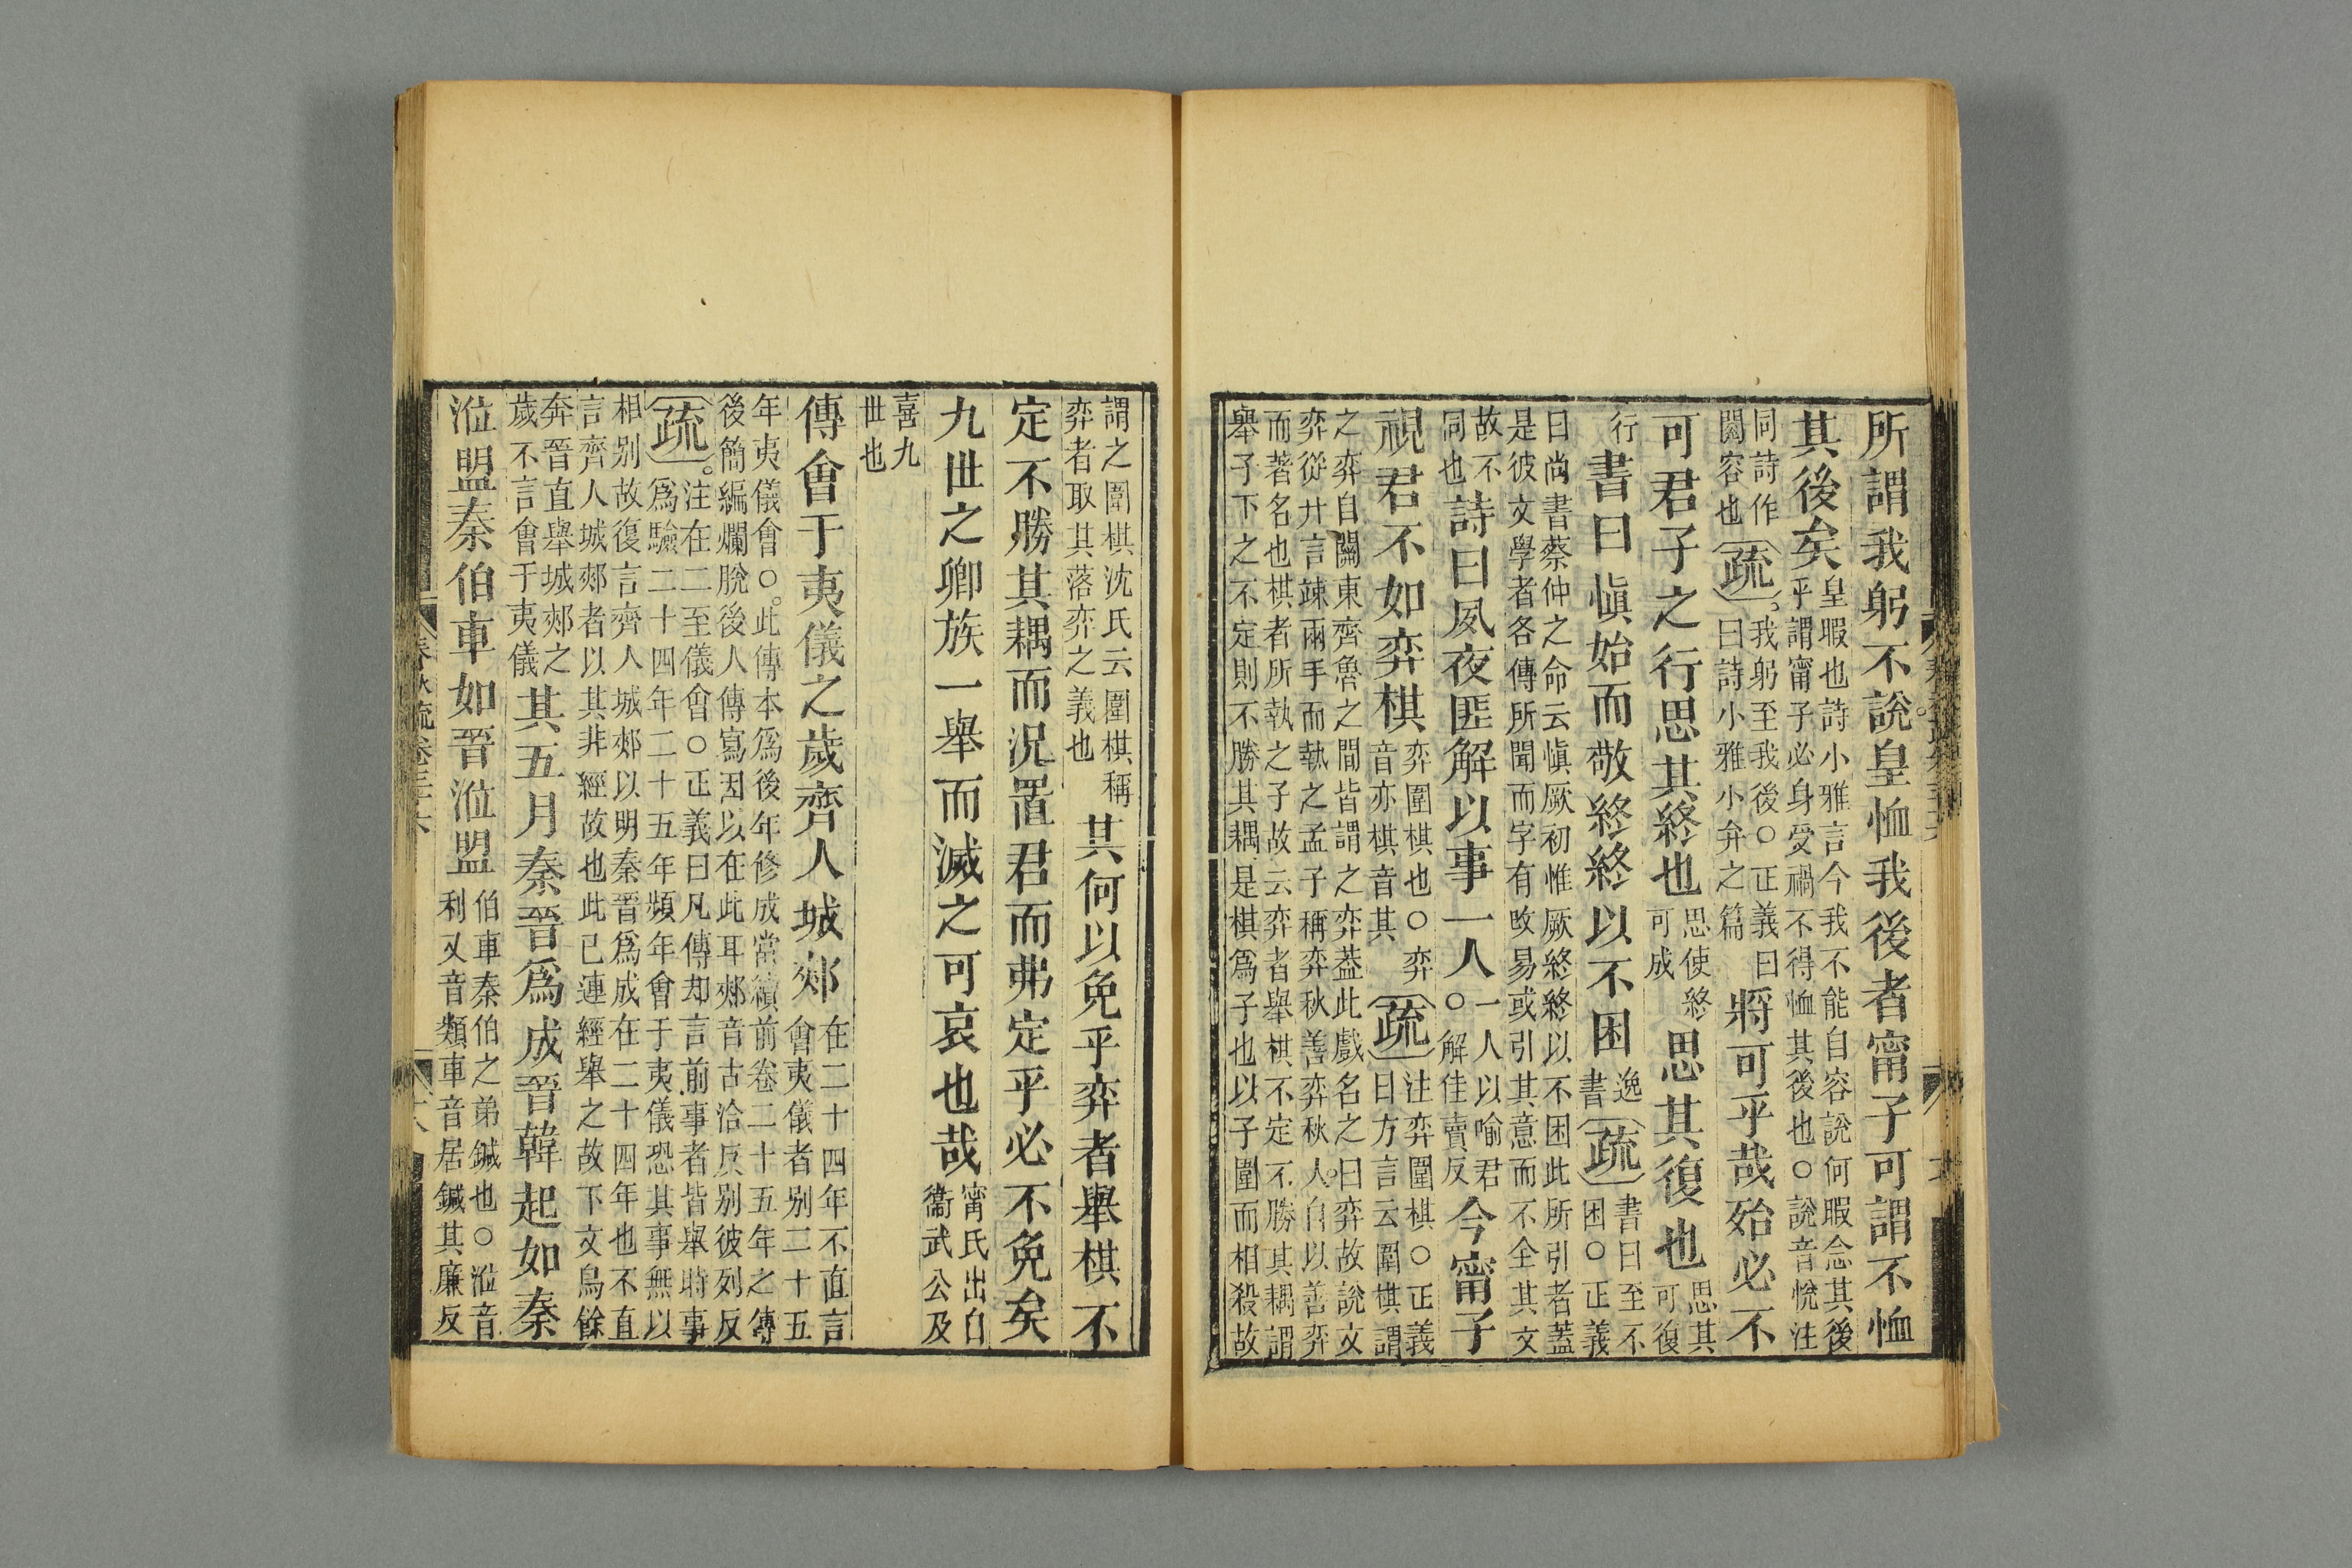 所謂我躬不說皇恤我後者甯子可謂不恤
其後矣皇暇也詩小雅言今我不能自容說何暇念其後乎謂甯子必身受禍不得恤其後也○說音悅注
同詩作閱容也疏我躬至我後○正義曰曰詩小雅小弁之篇將可乎哉殆必不
可君子之行思其終也思使終可成思其復也思其可復
行書曰愼始而敬終終以不困逸書疏書曰至不困○正義
曰尚書蔡仲之命云愼厥初惟厥終終以不困此所引者蓋是彼文學者各傳所聞而字有改易或引其意而不全其文
故不同也詩曰夙夜匪解以事一人○一人以喻君解佳賣反今甯子
視君不如弈棋弈圍棋也○弈音亦棋音其疏注弈圍棋○正義曰方言云圍棋謂
之弈自關東齊魯之間皆謂之弈蓋此戲名之曰弈故說文弈從廾言竦兩手而執之孟子稱弈秋善弈秋人自以善弈
而著名也棋者所執之子故云弈者舉棋不定不勝其耦謂舉子下之不定則不勝其耦是棋爲子也以子圍而相殺故
謂之圍棋沈氏云圍棋稱弈者取其落弈之義也其何以免乎弈者舉棋不
定不勝其耦而況置君而弗定乎必不免矣
九世之卿族一舉而滅之可哀也哉甯氏出自衞武公及
喜九世也
傳會于夷儀之歲齊人城郟在二十四年不直言會夷儀者別二十五
年夷儀會○此傳本爲後年修成當續前卷二十五年之傳後簡編爛脫後人傳寫因以在此耳郟音古洽反別彼列反
疏注在二至儀會○正義曰凡傳却言前事者皆舉時事爲驗二十四年二十五年頻年會于夷儀恐其事無以
相別故復言齊人城郟以明秦晉爲成在二十四年也不直言齊人城郟者以其非經故也此已連經舉之故下文烏餘
奔晉直舉城郟之歲不言會于夷儀其五月秦晉爲成晉韓起如秦
涖盟秦伯車如晉涖盟伯車秦伯之弟鍼也○涖音利又音類車音居鍼其廉反
春秋疏卷三十六